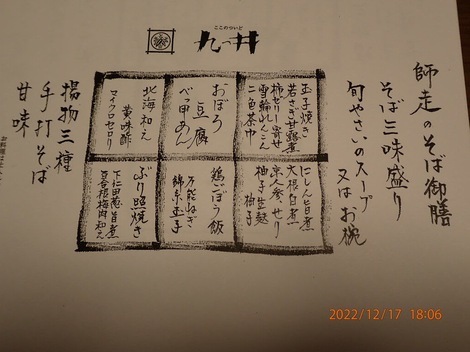 ここのついど
九つ井
師走のそば御膳
そば三昧盛り
旬やさいのスープ
又はお椀
玉子焼き
若さぎ甘露煮
柿ゼリー寄せ
雪輪れんこん
二色茶巾
おぼろ
豆腐
べっ甲あん
北海和え
黄味酢
マイクロセロリ
にしん旨煮
大根白煮
京人参、せり
柚子生麩
柚子
鶏ごぼう飯
万能ねぎ
錦糸玉子
ぶり照焼き
下仁田葱旨煮
百合根梅肉和え
揚物三種
手打そば
甘味
2022/12/17 18:06